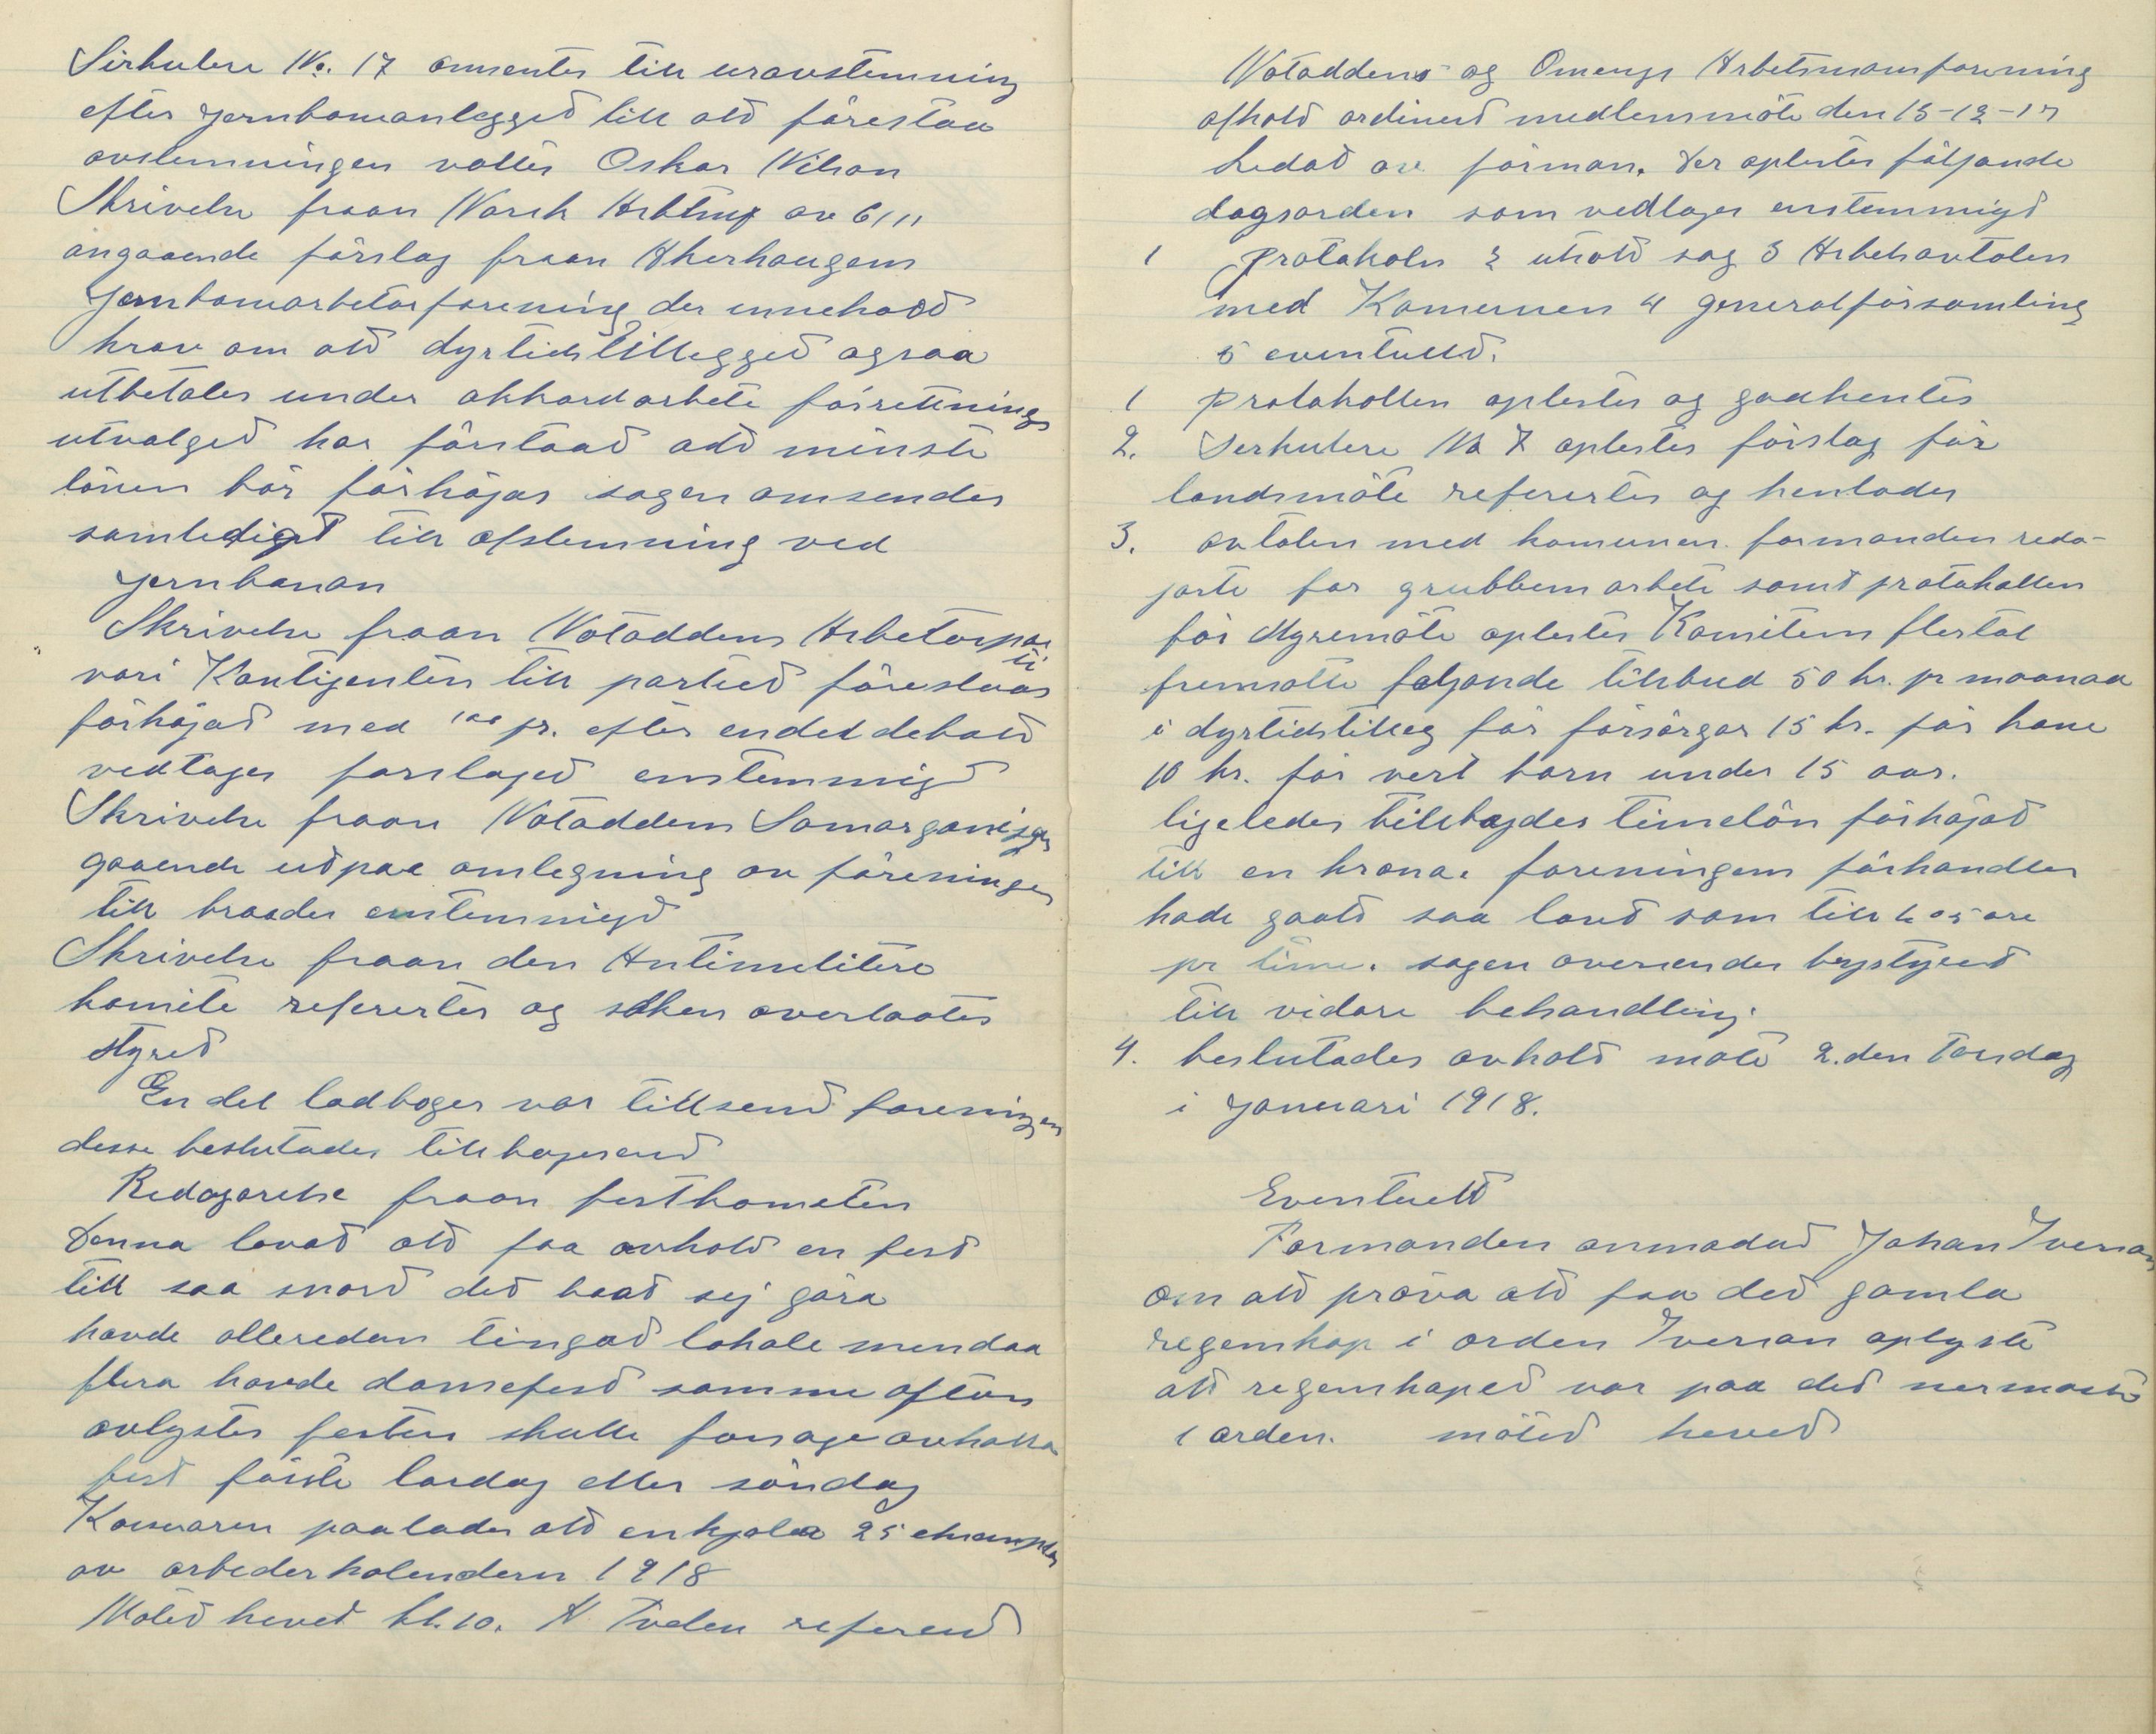 Sirkulere No. 17 omsentes till uravstemning
efter jernbaneanlegged till att förestaa
avstemningen valtes Oskar Nilson
Skrivelse fraan Norsk Arbtmf av 6/11
angaaende förslag fraan Akerhaugens
Jernbanearbetarforening der innehaod
krav om att dyrtidstillegged ogsaa
utbetales under akkordarbete förrettnings
utvalged har förstaad att minste
lönen bör förhöjas sagen omsendes
samtedigt till afstemning ved
jernbanan
Skrivelse fraan Notoddens Arbetarpar
ti
vari Kontigenten till partied föreslaas
förhöjad med 100 pr. efter endel debatt
vedtages forslaged enstemmigt
Skrivelse fraan Notoddens Samorganisjon
gaaende udpaa omlegning av föreningen
till braades enstemmigt
Skrivelse fraan den Antimelitere
komite referertes og saken overlaotes
styred
En del lodboger var tillsend foreningen
desse beslutades tillbagesend
Redogorelse fraan festkometen
Denna lovad att faa avhold en fest
till saa snard det laad sej göra
havde alleredan tingad lokale mendaa
flera havde dansefest samme aften
avlystes festen skulle forsage avhalla
fest förste lordag eller söndag
Kasseraren paalades att enkjola 25 eksemplar
av arbederkalendern 1918
Möted hevet kl. 10. A Tvelen referend
Notoddens og Omengs Arbetsmansforening
afhold ordinerd medlemsmöte den 15-12-17
Ledad av förman. Der oplestes följande
dagsorden som vedtages enstemmigt
1 Protokoln 2 utsott sag 3 Arbetsavtalen
med Komunen 4 generalförsamling
5 eventuelt.
1 Protokollen oplestes og godkentes
2. Serkulere No 7 oplestes förslag för
landsmöte referertes og henlades
3. avtalen med komunen. formanden redo-
jorte for grubbens arbete samt protokollen
för Myremöte oplestes Komiteens flertal
fremsatte folgande tilbud 50 kr. pr maanad
i dyrtidstilleg för försörgar 15 kr. för kone
10 kr. för vert barn under 15 aar.
ligeledes tilbagdes timelön förhöjad
till en krona. foreningens förhandler
hade gaatt saa lant som till 1.05 öre
pr time. sagen oversendes bystyred
till vidare behandling.
4. beslutades avhold möte 2.den Torsdag
i januari 1918.
Eventuelt
Formanden anmodad Johan Iverson
om att pröva att faa ded gamla
regenskap i orden Iverson oplyste
att regenskaped var paa ded nermaste
i orden. möted heved